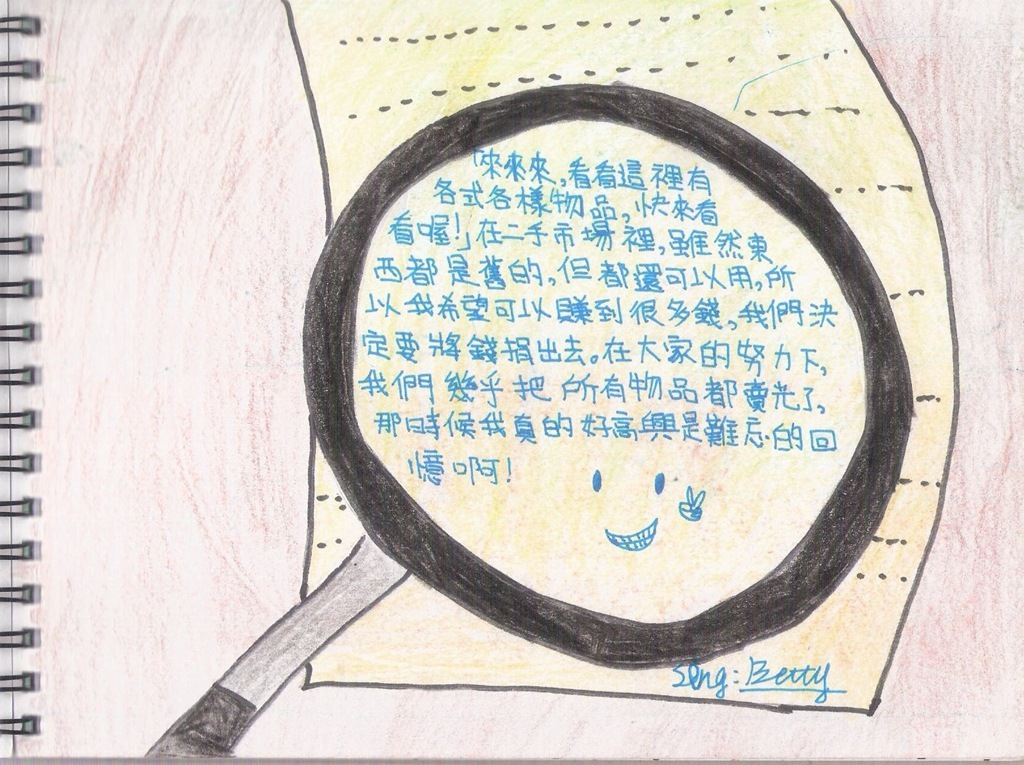 「來來來，看看這裡有
各式各樣物品，快來看
看喔！」在二手市場裡，雖然東
西都是舊的，但都還可以用，所
以我希望可以賺到很多錢，我們決
定要將錢捐出去。在大家的努力下，
我們幾乎把所有物品都賣光了，
那時候我真的好高興是難忘的回
憶啊！
Betty